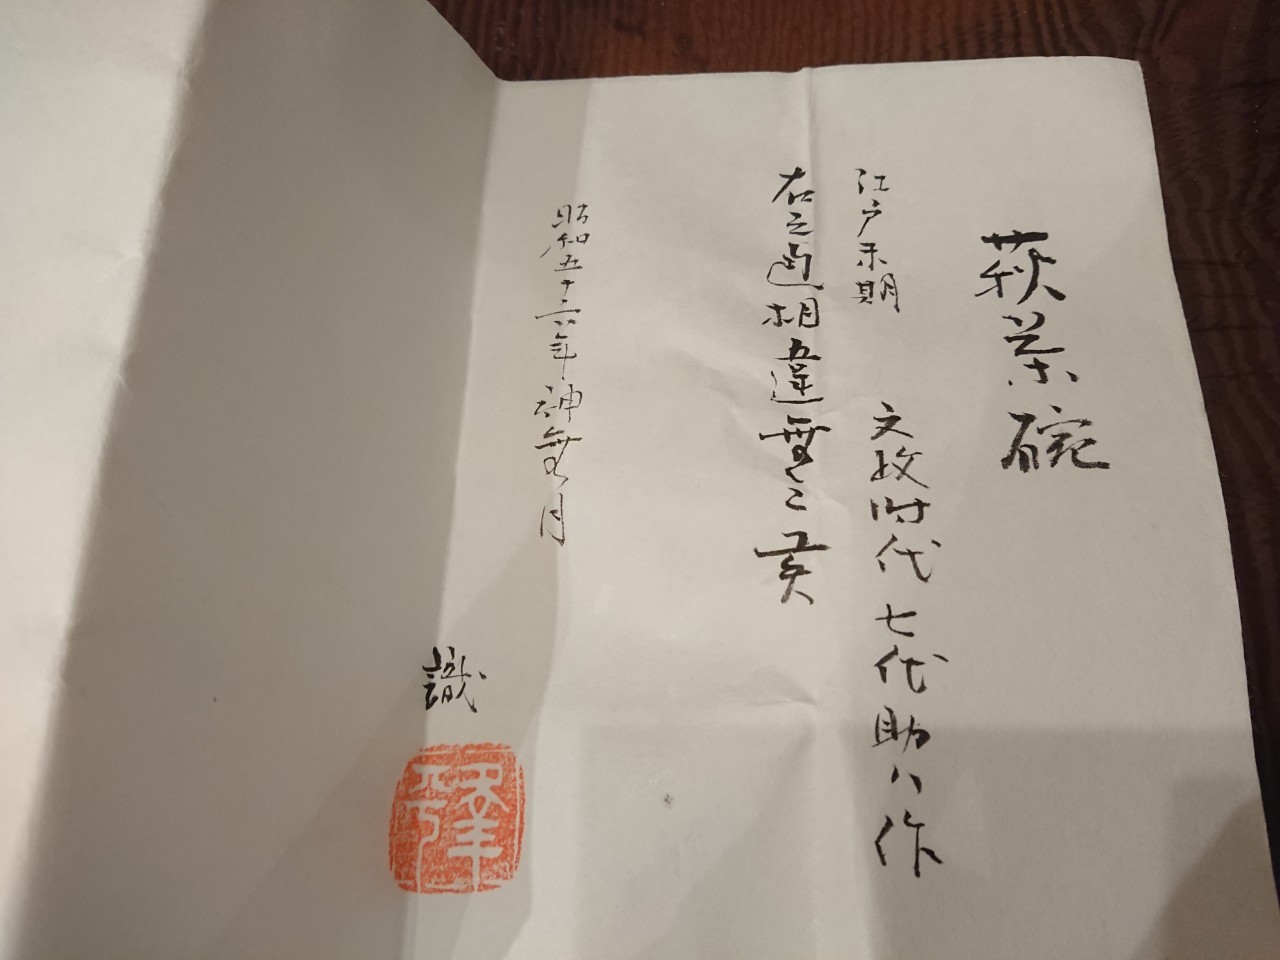 萩茶碗
江戸末期 文政時代 七代助八作
右之通相違無之矣
昭和五十六年神無月
識